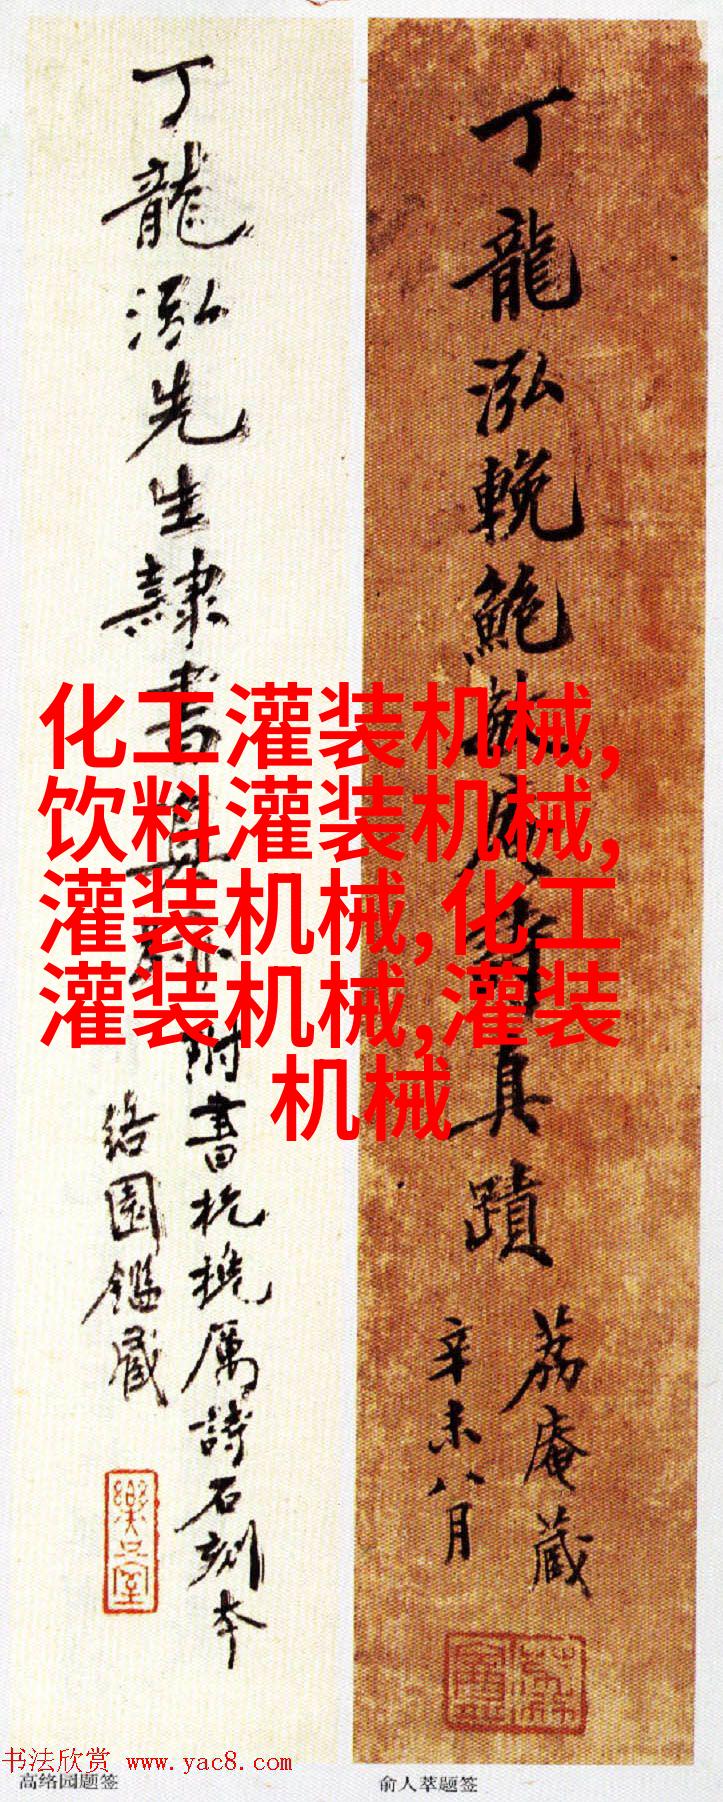 丁龍泓輓鮑敬庵詩真蹟
荔庵藏
辛未八月
丁龍泓先生隸書真跡
附書杭挽厲詩石刻本
络園鑑藏
樂只室
化工灌装机械,
饮料灌装机械,
灌装机械,化工
灌装机械,灌装
机械
书法欣赏 www.yac8.com
高络园题签
俞人萃题签